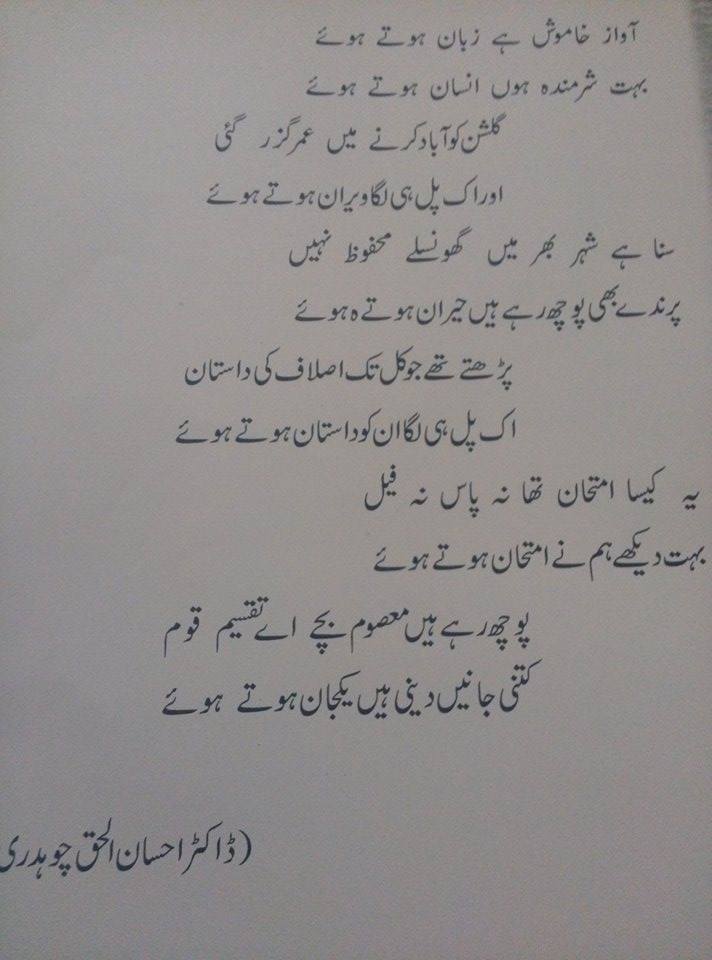 آواز خاموش ہے زبان ہوتے ہوئے
بہت شرمندہ ہوں انسان ہوتے ہوئے
گلشن کو آباد کرنے میں عمر گزر گئی
اور اک پل ہی لگا ویران ہوتے ہوئے
سنا ہے شہر بھر میں گھونسلے محفوظ نہیں
پرندے بھی پوچھ رہے ہیں حیران ہوتے ہ ہوئے
پڑھتے تھے جو کل تک اصلاف کی داستان
اک پل ہی لگا ان کو داستان ہوتے ہوئے
یہ کیسا امتحان تھا نہ پاس نہ فیل
بہت دیکھے ہم نے امتحان ہوتے ہوئے
پوچھ رہے ہیں معصوم بچے اے تقسیم قوم
کتنی جانیں دینی ہیں یکجان ہوتے ہوئے
(ڈاکٹر احسان الحق چوہدری